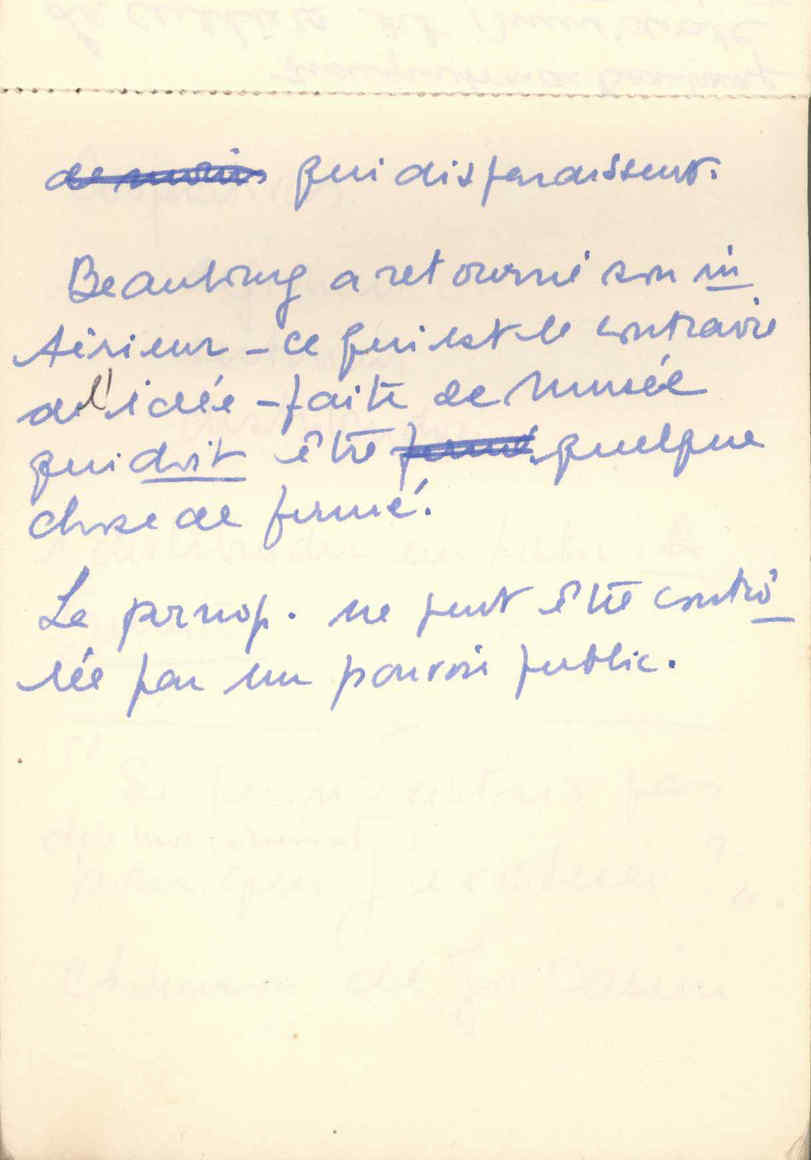 qui disparaissent.
Beaubourg a retourné son in
térieur – ce qui est le contraire
de l'idée – faite de Musée
qui doit être quelque
chose de fermé.
Le pornop. ne peut être contrô
lée par un pouvoir public.